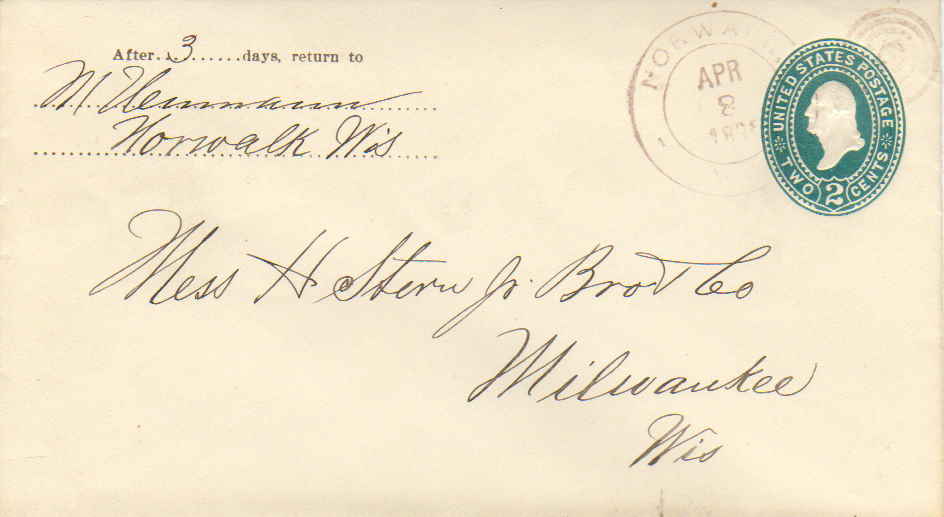 After 3 days, return to
Norwalk Wis
NORWALK
APR
2
UNITED STATES POSTAGE
TWO 2 CENTS
Mess H Stern Jr. Bro & Co
Milwaukee
Wis